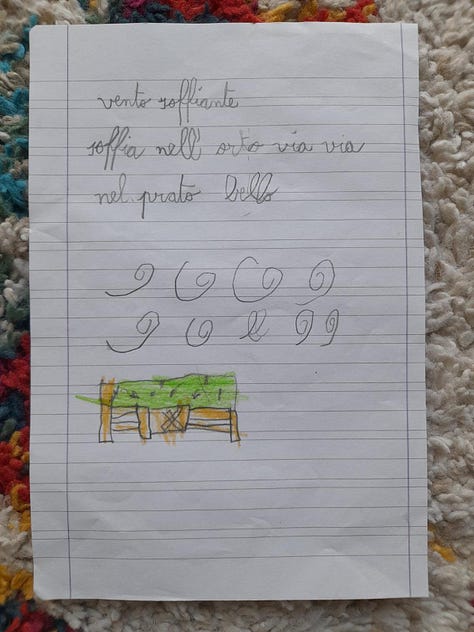 vento soffiante
soffia nell' orto via via
nel prato bello